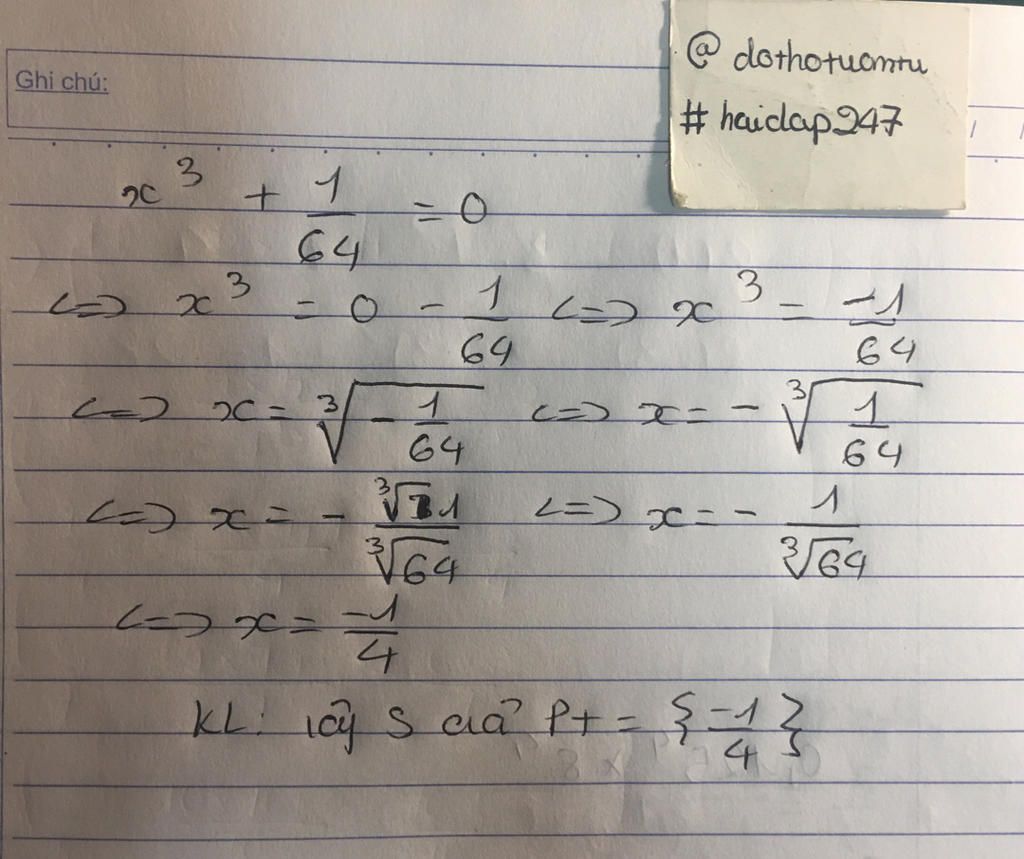 Ghi chú:
@dothotuomtu
#hoidap247
x³ + 1/64 = 0
<=> x³ = 0 - 1/64 <=> x³ = -1/64
<=> x = ∛(-1/64) <=> x = -∛(1/64)
<=> x = - ∛1/∛64 <=> x = - 1/∛64
<=> x = -1/4
KL: Vậy S của Pt = {-1/4}